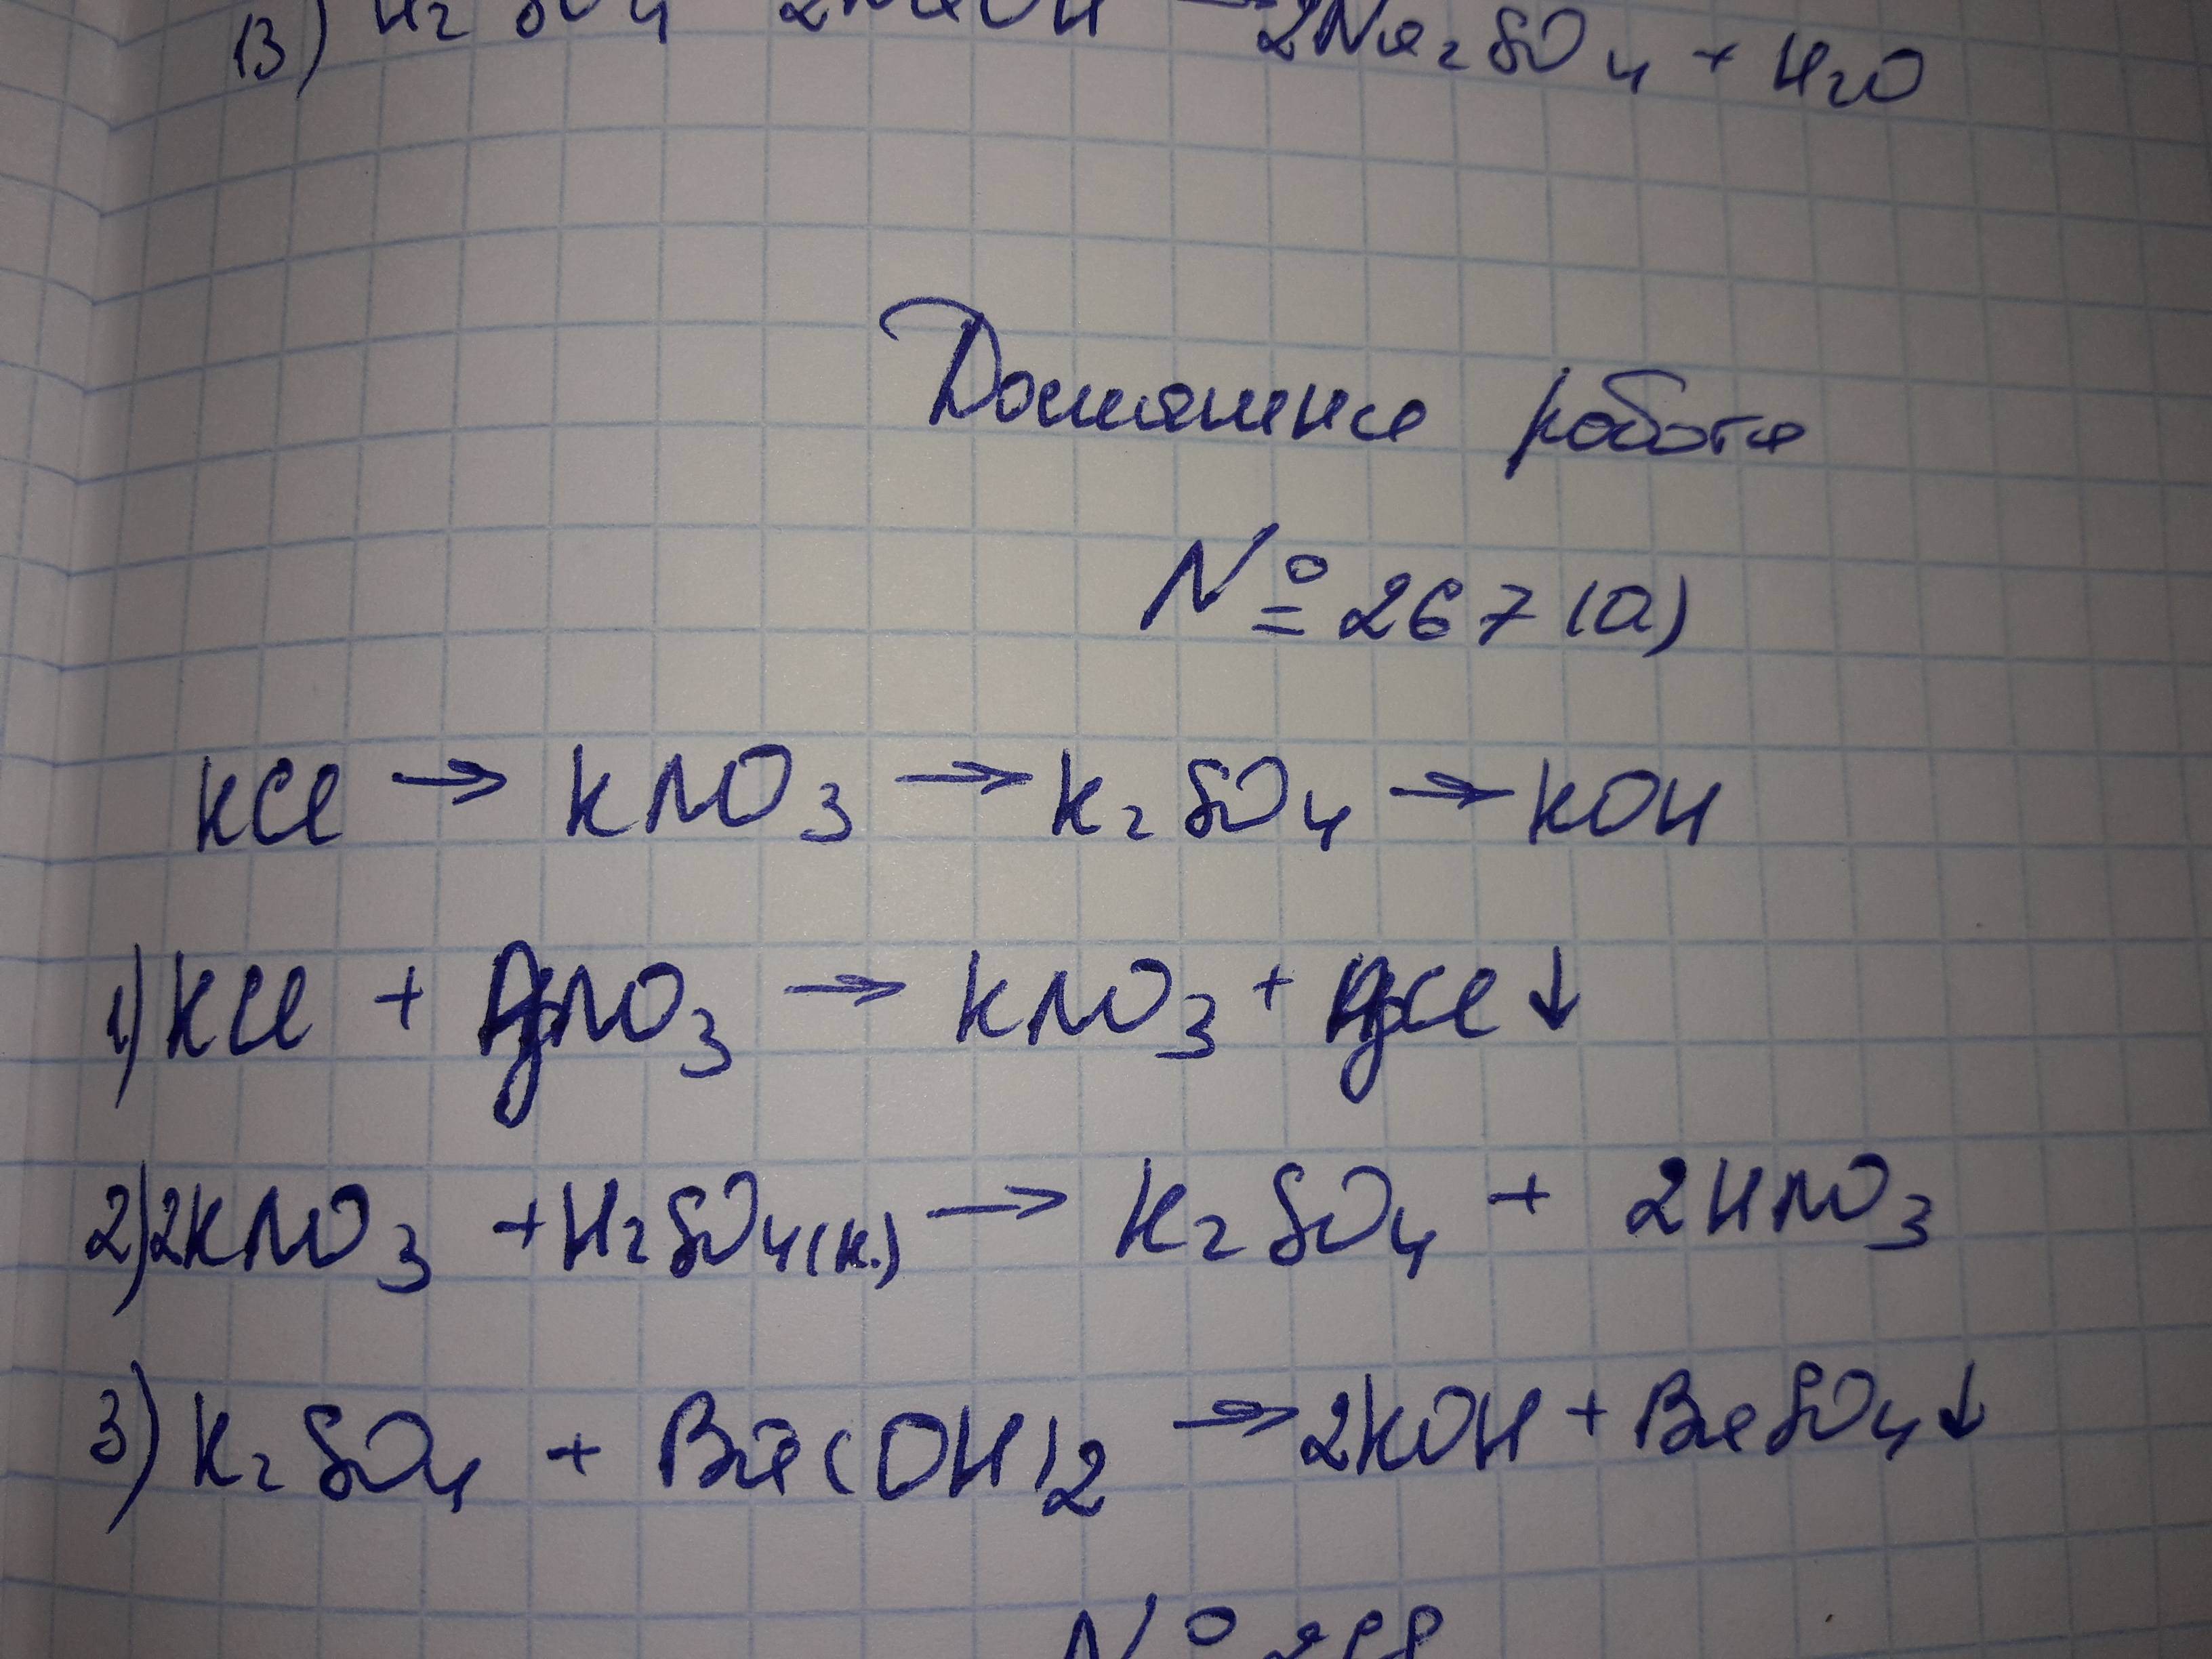 В) H₂SO₄ 2NaOH → 2Na₂SO₄ + H₂O
Домашня робота
№ 267 (а)
KCl → KNO₃ → K₂SO₄ → KOH
1) KCl + AgNO₃ → KNO₃ + AgCl ↓
2) 2KNO₃ + H₂SO₄(к.) → K₂SO₄ + 2HNO₃
3) K₂SO₄ + Ba(OH)₂ → 2KOH + BaSO₄ ↓
№